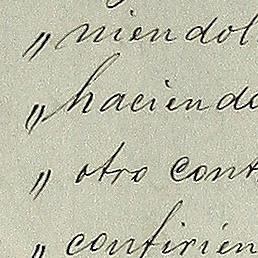 " niendol
" haciendo
" otro cont
" confirien